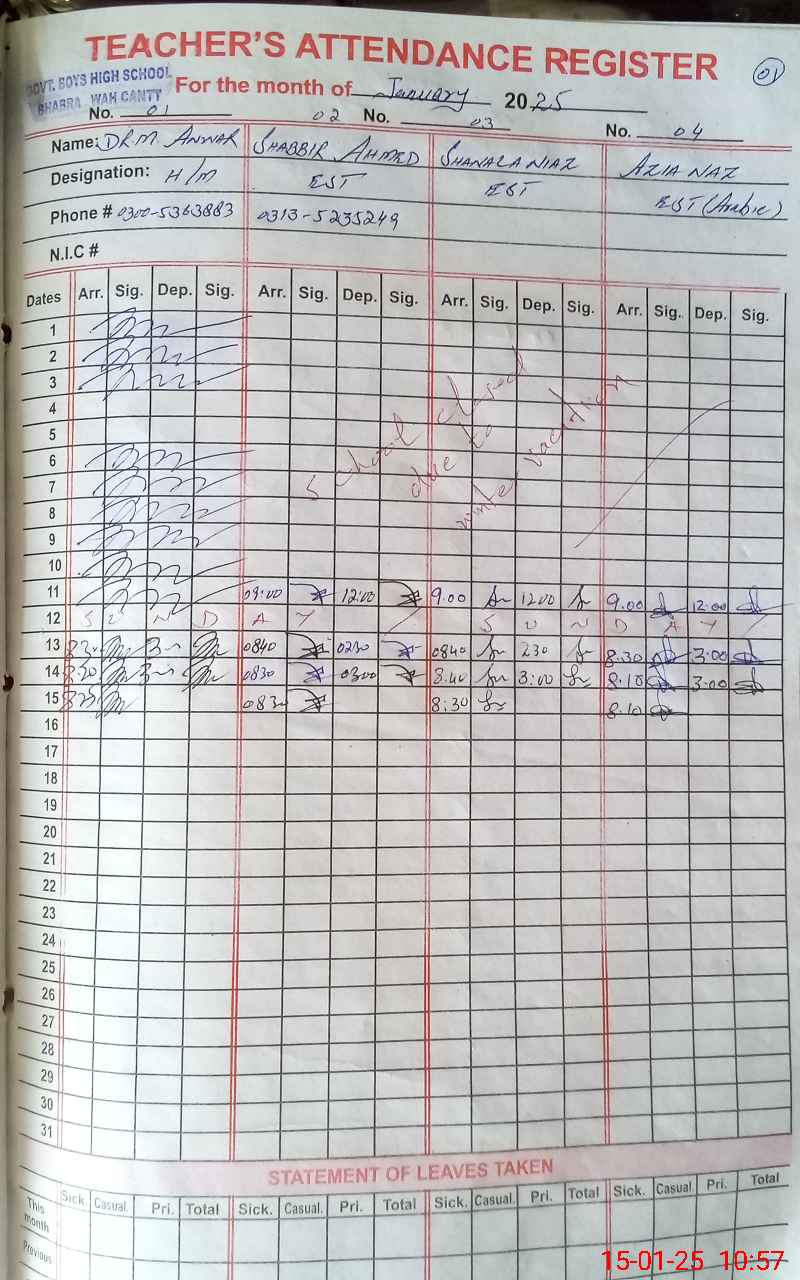 TEACHER'S ATTENDANCE REGISTER
01
GOVT. BOYS HIGH SCHOOL
BHABRA WAH CANTT
For the month of January 2025
No. 01 02 No. 03 No. 04
Name: DR.M. ANWAR SHABBIR AHMED SHANALA NIAZ AZIA NAZ
Designation: H/M EST EST EST (Arabic)
Phone # 0300-5363883 0313-5235249
N.I.C #
Dates Arr. Sig. Dep. Sig. Arr. Sig. Dep. Sig. Arr. Sig. Dep. Sig. Arr. Sig. Dep. Sig.
1
2
3
4
5
6
7
8
9
10
School closed
due to
winter vacation
11 09:00 12:00 9.00 1200 9.00 12:00
12 S U N D A Y S U N D A Y
13 0840 0230 0840 230 8.30 3:00
14 8:30 0830 0300 8:40 3:00 8:10 3:00
15 0830 8:30 8:10
16
17
18
19
20
21
22
23
24
25
26
27
28
29
30
31
STATEMENT OF LEAVES TAKEN
Sick. Casual. Pri. Total Sick. Casual. Pri. Total Sick. Casual. Pri. Total Sick. Casual. Pri. Total
This month
Previous
15-01-25 10:57